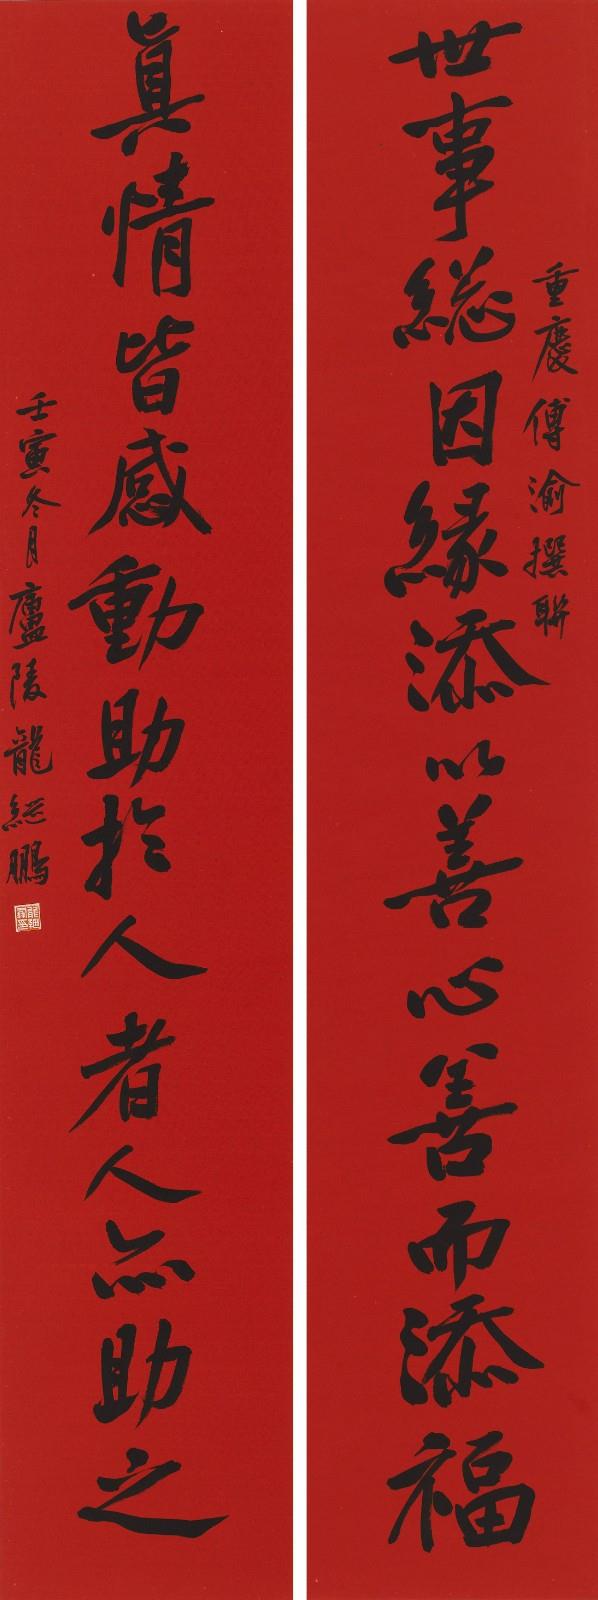 世事総因緣添以善心善而添福
重慶傅渝撰聯
真情皆感動助於人者人亦助之
壬寅冬月廬陵龍紀鵬